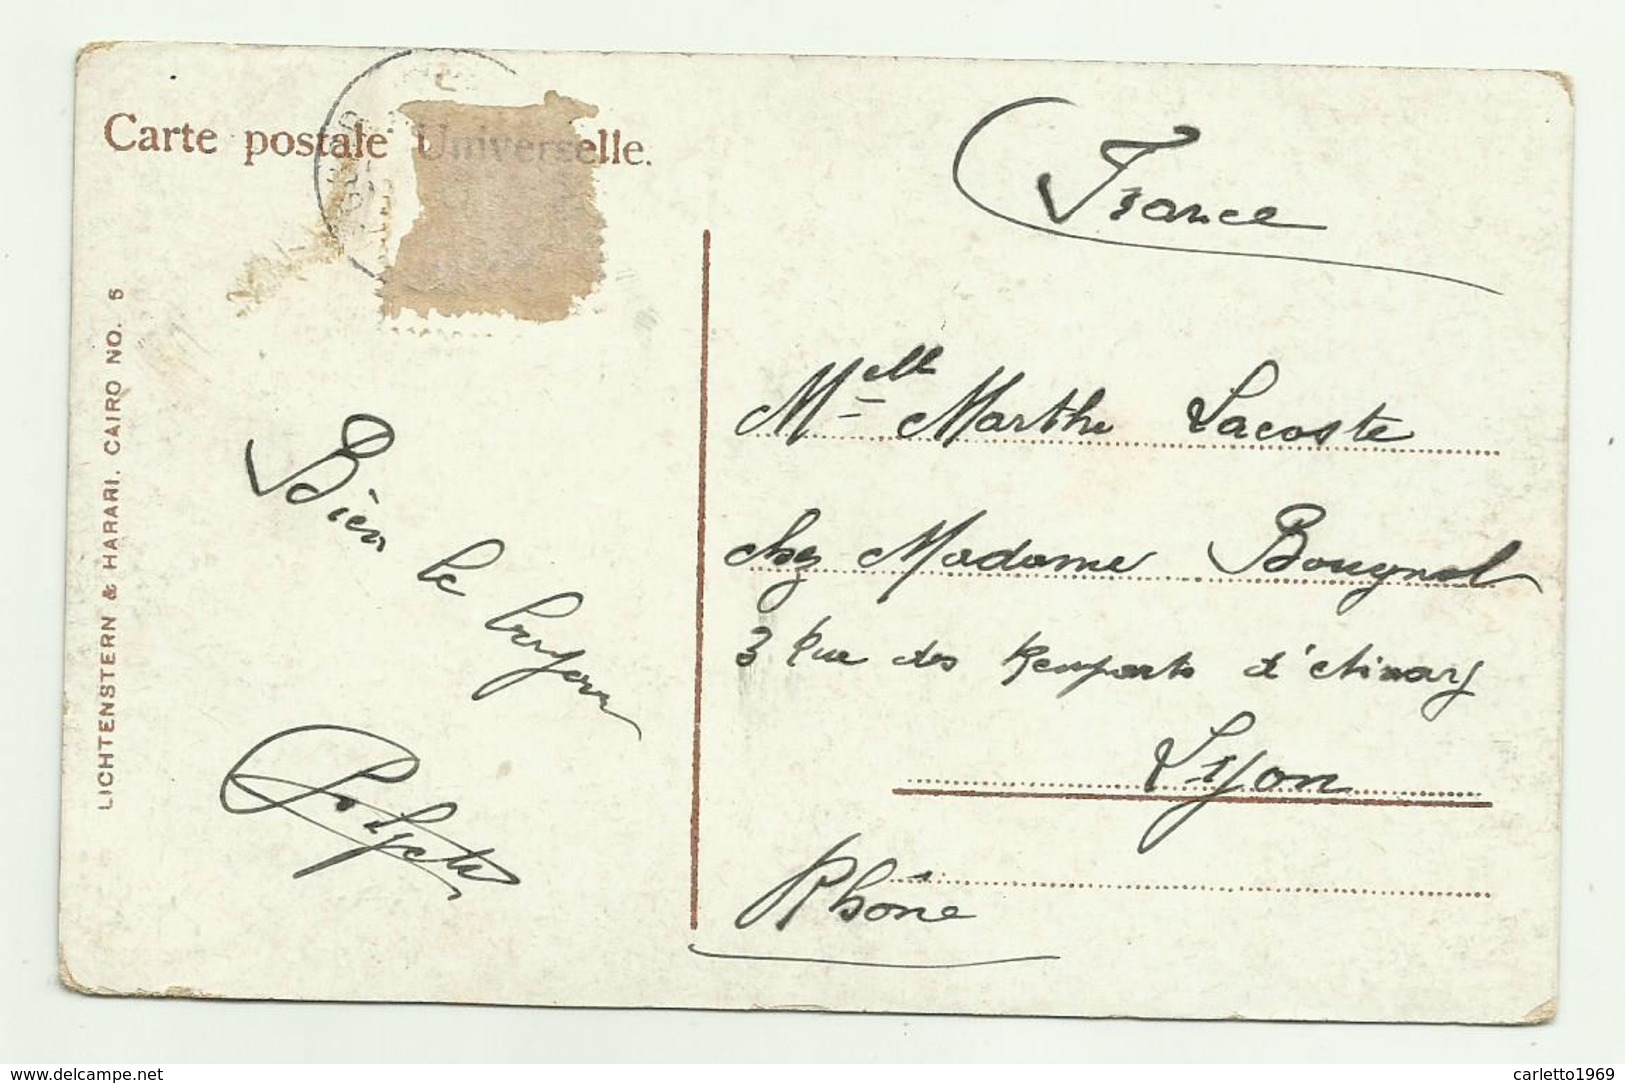 Carte postale Universelle.
LICHTENSTERN & HARARI. CAIRO NO. 5
Bien le
France
Melle Marthe Lacoste
chez Madame Bougnol
3 Rue des Remparts d'Ainay
Lyon
Rhône
www.delcampe.net
carletto1969